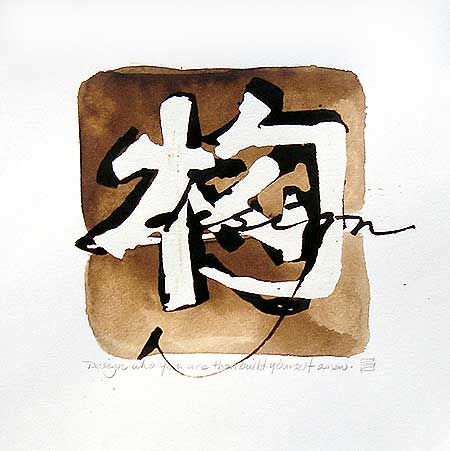 构
design
Design who you are then build yourself anew.